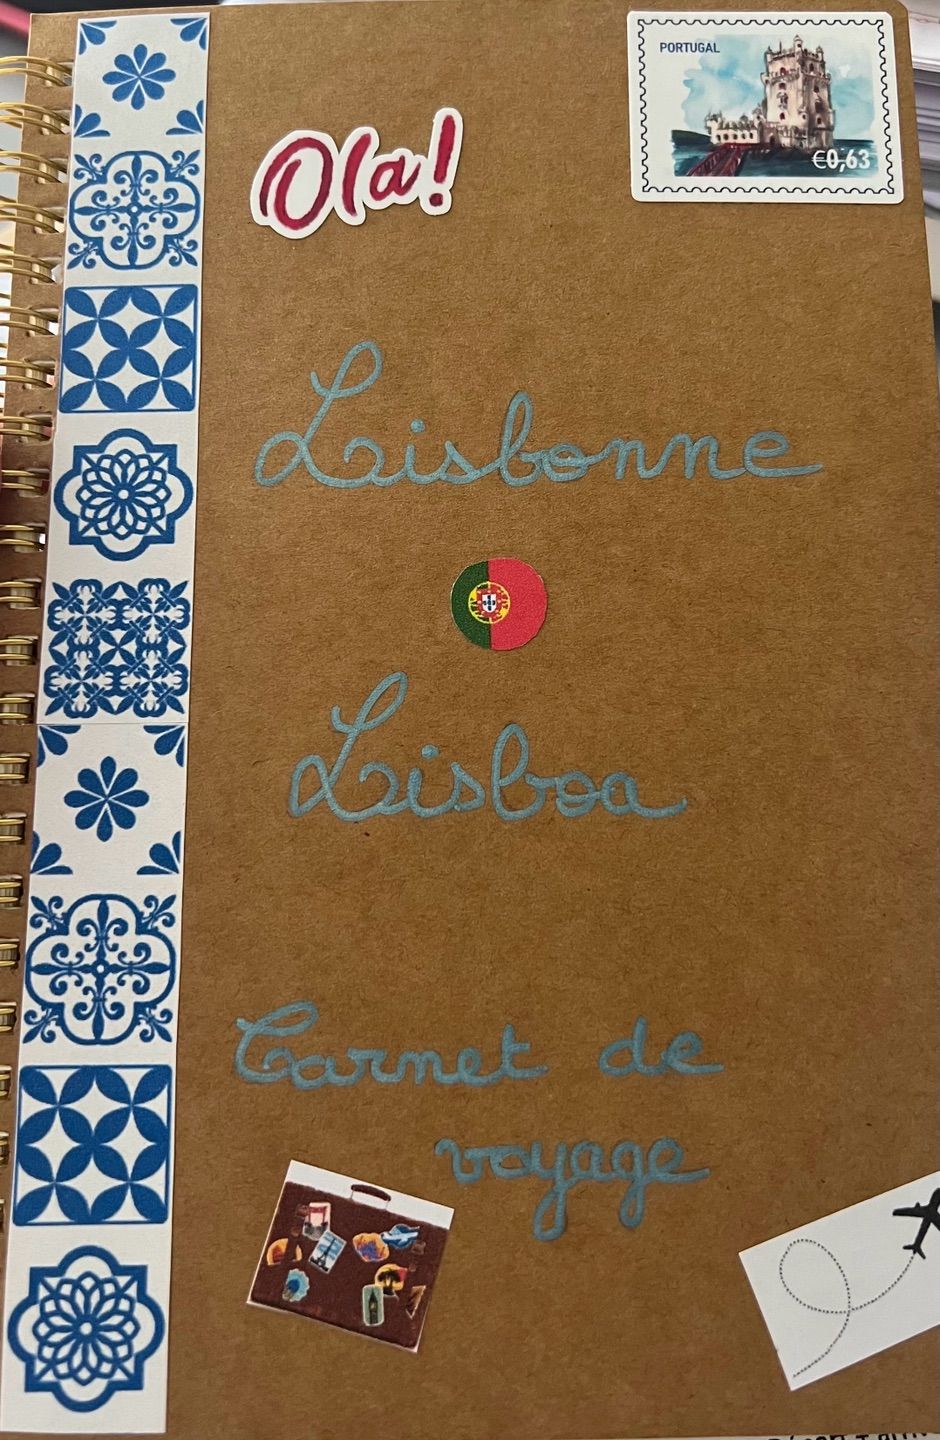 PORTUGAL
€0,63
Ola!
Lisbonne
Lisboa
Carnet de
voyage